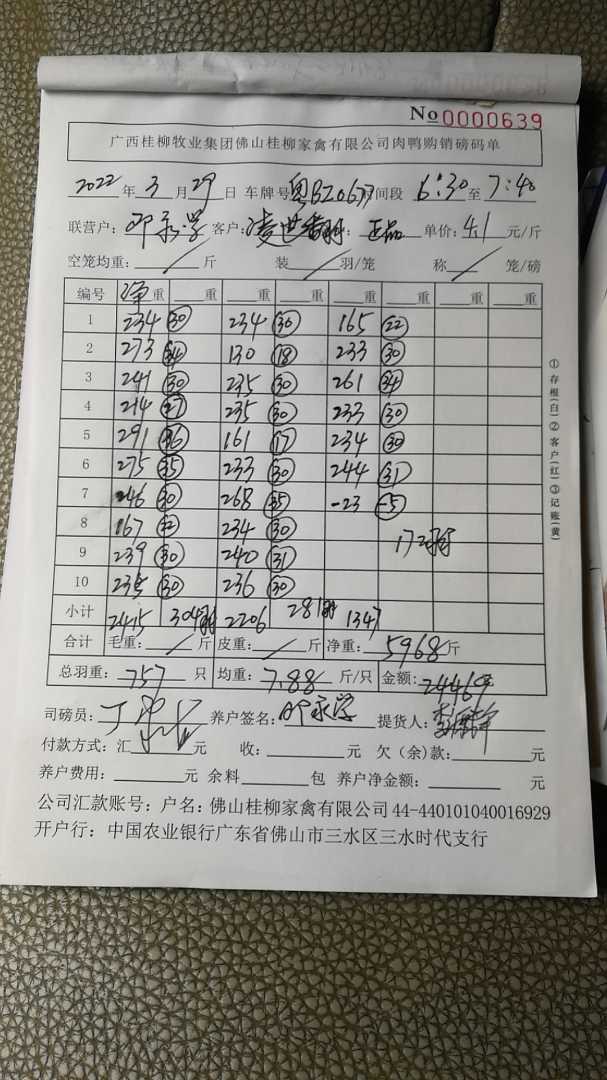 No 0000639
广西桂柳牧业集团佛山桂柳家禽有限公司肉鸭购销磅码单
2022 年 3 月 29 日 车牌号 粤BZ0677 间段 6:30 至 7:40
联营户: 邓永学 客户: 凌世 : 正品 单价: 4.1 元/斤
空笼均重: / 斤 装 / 羽/笼 称 / 笼/磅
编号 净重 重 重 重 重 重 重 重
1 234 30 234 30 165 22
2 273 34 130 18 233 30
3 241 30 235 30 261 34
4 214 27 235 30 233 30
5 291 36 161 17 234 30
6 275 35 233 30 244 31
7 246 30 268 35 -23 -5
8 167 22 234 30
9 239 30 240 31 172羽
10 235 30 236 30
小计 2415 304羽 2206 281羽 1347
合计 毛重: / 斤 皮重: / 斤 净重: 5968 斤
总羽重: 757 只 均重: 7.88 斤/只 金额: 24469
司磅员: 丁 养户签名: 邓永学 提货人: 李
付款方式: 汇 元 收: 元 欠(余)款: 元
养户费用: 元 余料 包 养户净金额: 元
公司汇款账号: 户名: 佛山桂柳家禽有限公司 44-440101040016929
开户行: 中国农业银行广东省佛山市三水区三水时代支行
①存根(白)②客户(红)③记账(黄)